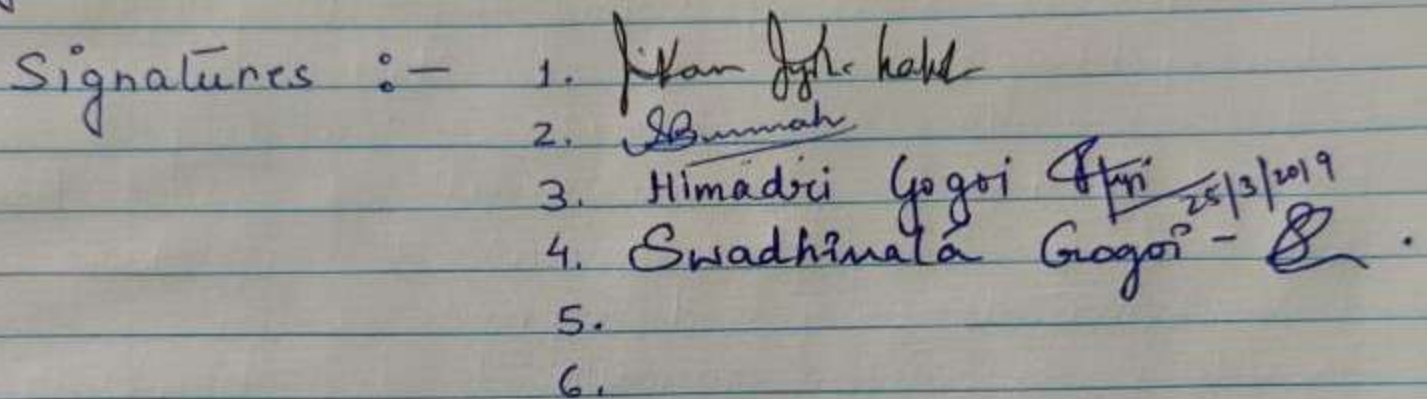 Signatures :- 1.
2. SBurmah
3. Himadri Gogoi 25/3/2019
4. Swadhinata Gogoi -
5.
6.